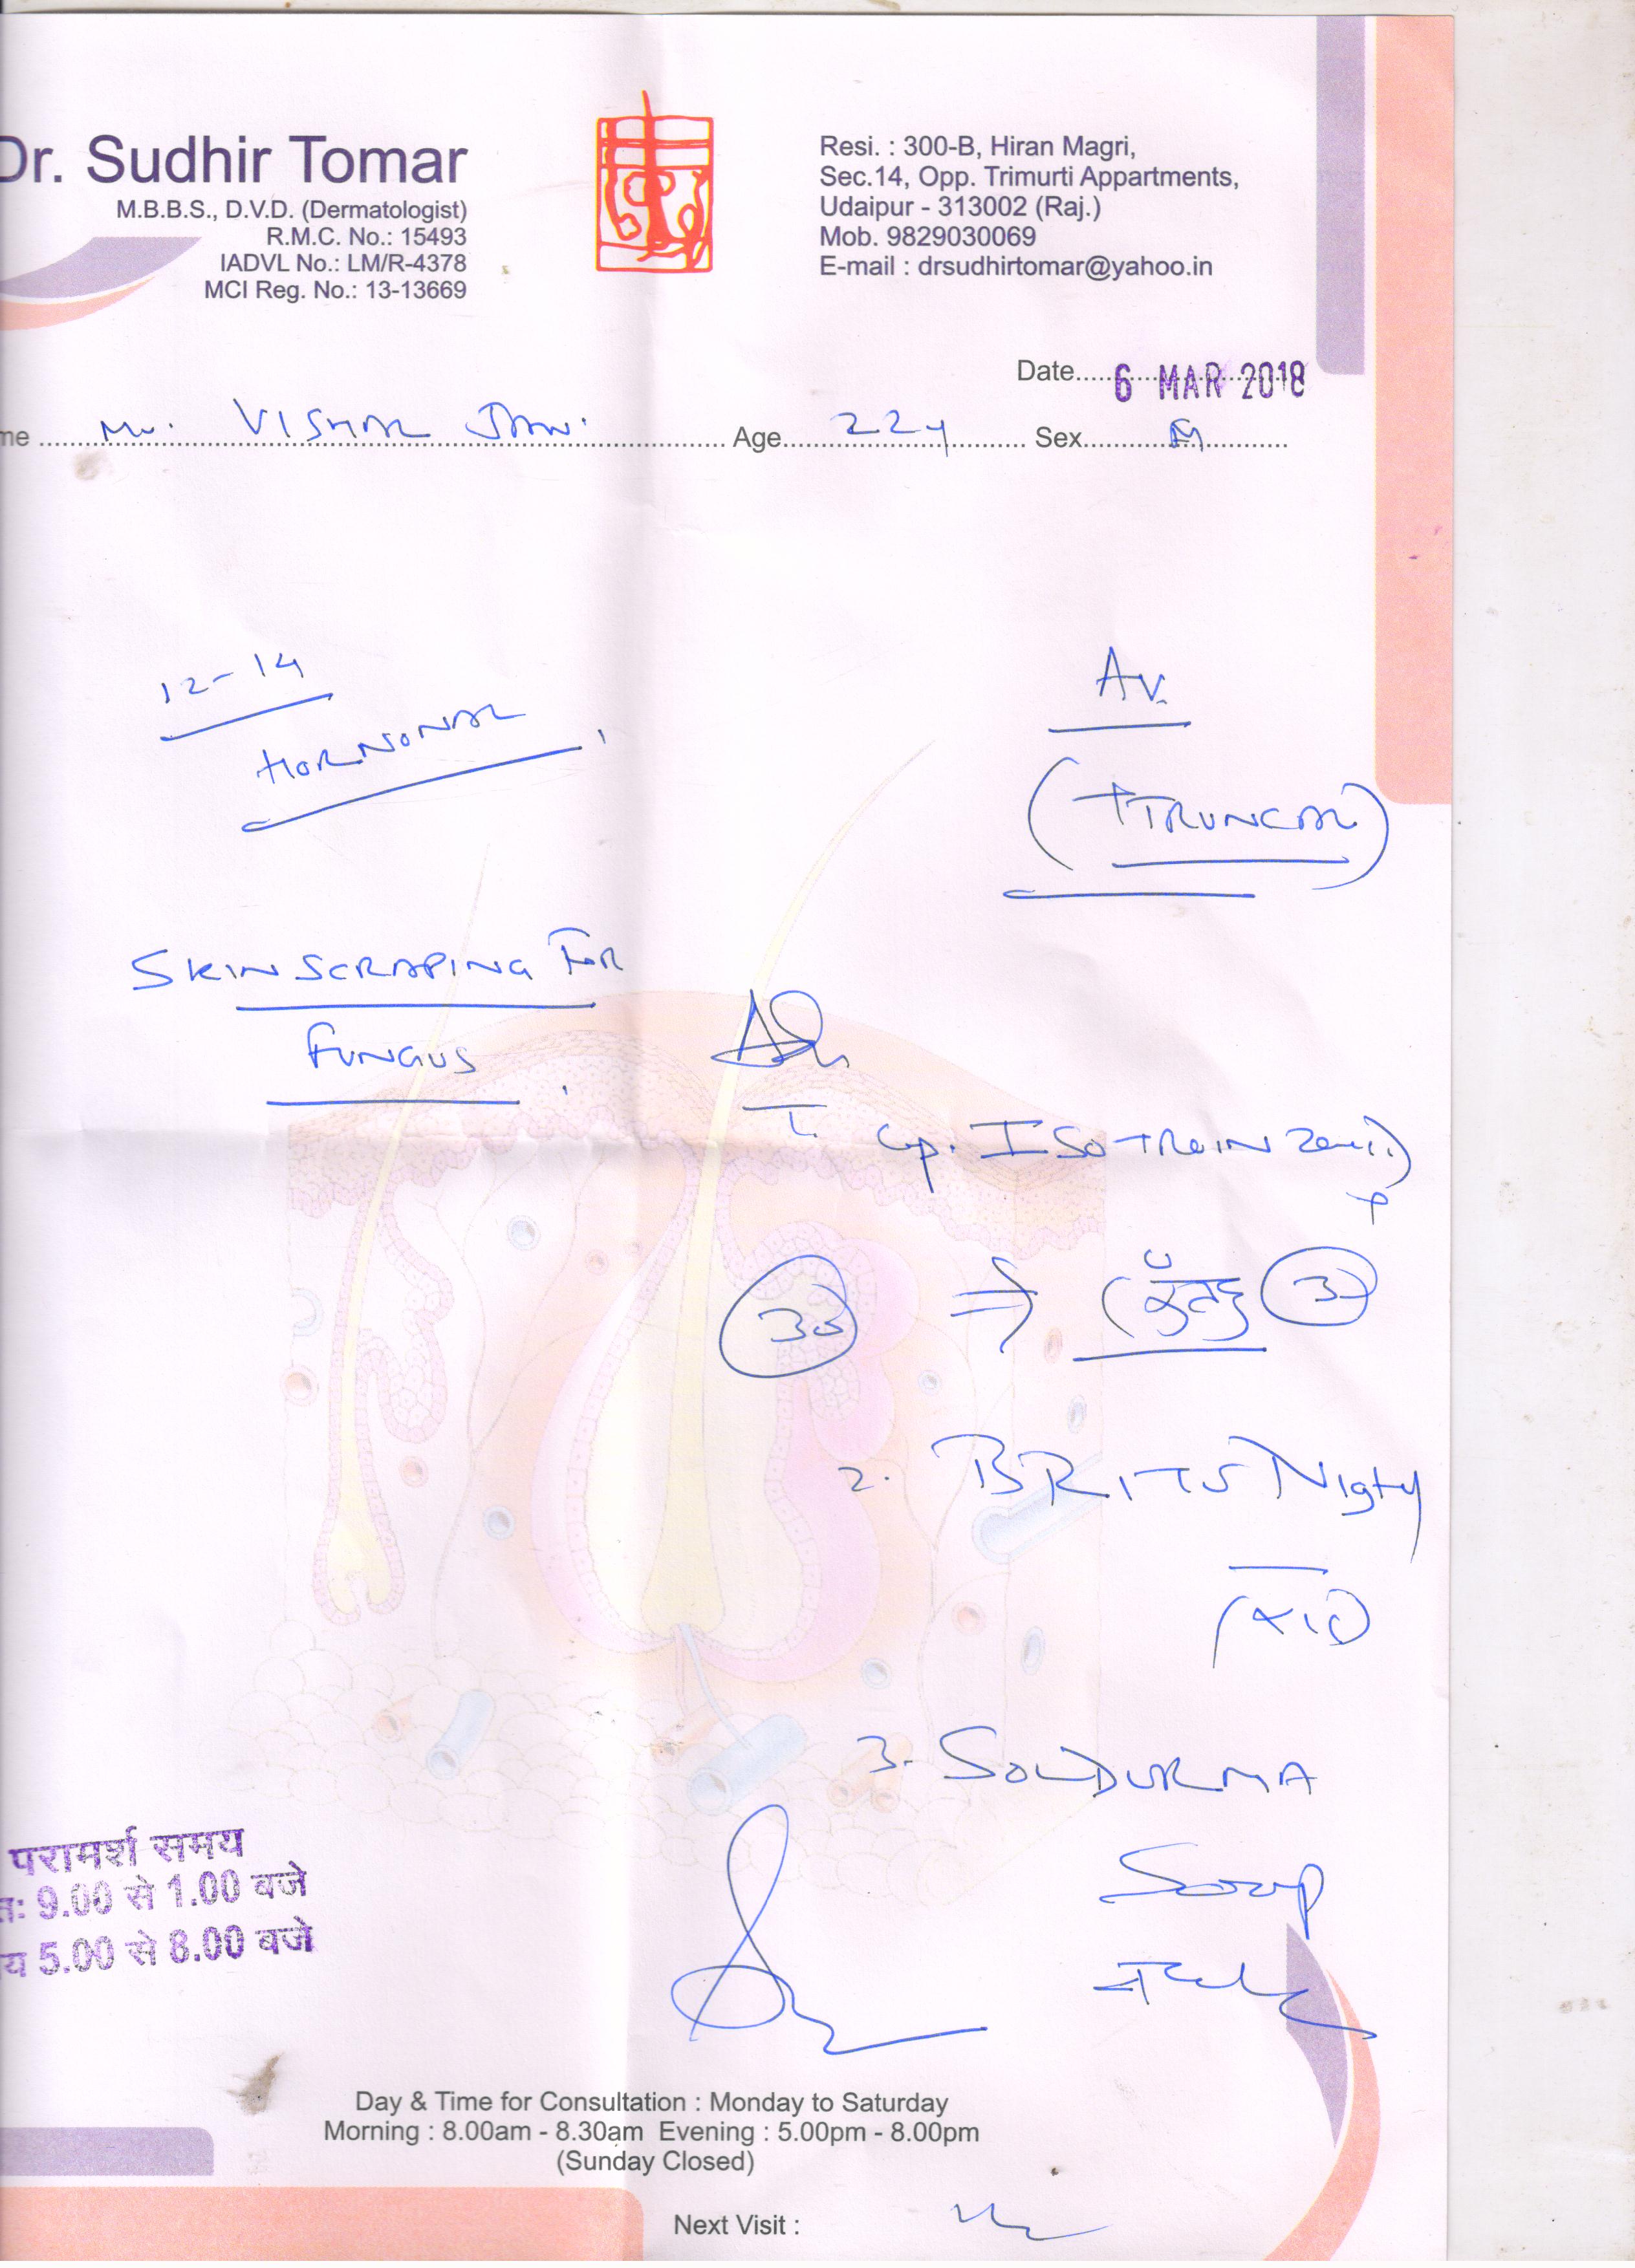 Dr. Sudhir Tomar
M.B.B.S., D.V.D. (Dermatologist)
R.M.C. No.: 15493
IADVL No.: LM/R-4378
MCI Reg. No.: 13-13669
Resi. : 300-B, Hiran Magri,
Sec.14, Opp. Trimurti Appartments,
Udaipur - 313002 (Raj.)
Mob. 9829030069
E-mail : drsudhirtomar@yahoo.in
Date..... 6 MAR 2018
me ..... Mr. VISHAL JAIN. ..... Age..... 22y ..... Sex..... M
12-14
HORMONAL
Av.
(+TRUNCAL)
SKIN SCRAPING FOR
FUNGUS
Cap. ISOTROIN
30
30
2. BRITE Nighty
(x10)
3. SOLDURMA
Soap
परामर्श समय
त: 9.00 से 1.00 बजे
य 5.00 से 8.00 बजे
Day & Time for Consultation : Monday to Saturday
Morning : 8.00am - 8.30am Evening : 5.00pm - 8.00pm
(Sunday Closed)
Next Visit :